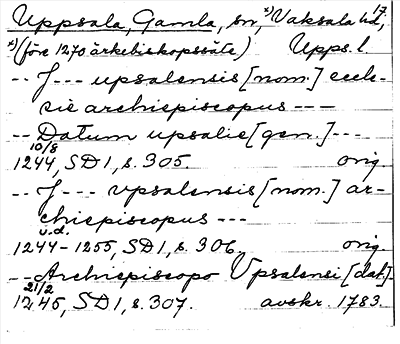 17.
Uppsala, Gamla, sn, *) Vaksala hd,
*) (före 1270 ärkebiskopssäte) Upps. l.
-- J--- upsalensis [nom.] eccle-
sie archiepiscopus ---
-- Datum upsalie [gen.] ---
10/8
1244, SD 1, s. 305. orig.
-- J--- vpsalensis [nom.] ar-
chiepiscopus ---
u.d.
1244-1255, SD 1, s. 306. orig.
-- Archiepiscopo Vpsalensi [dat.]
21/2
1245, SD 1, s. 307. avskr. 1783.